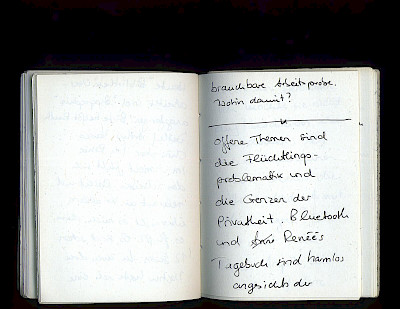 brauchbare Arbeitsprobe.
Wohin damit?
Offene Themen sind
die Flüchtlings-
problematik und
die Grenzen der
Privatheit. Bluetooth
und Renées
Tagebuch sind harmlos
angesichts der